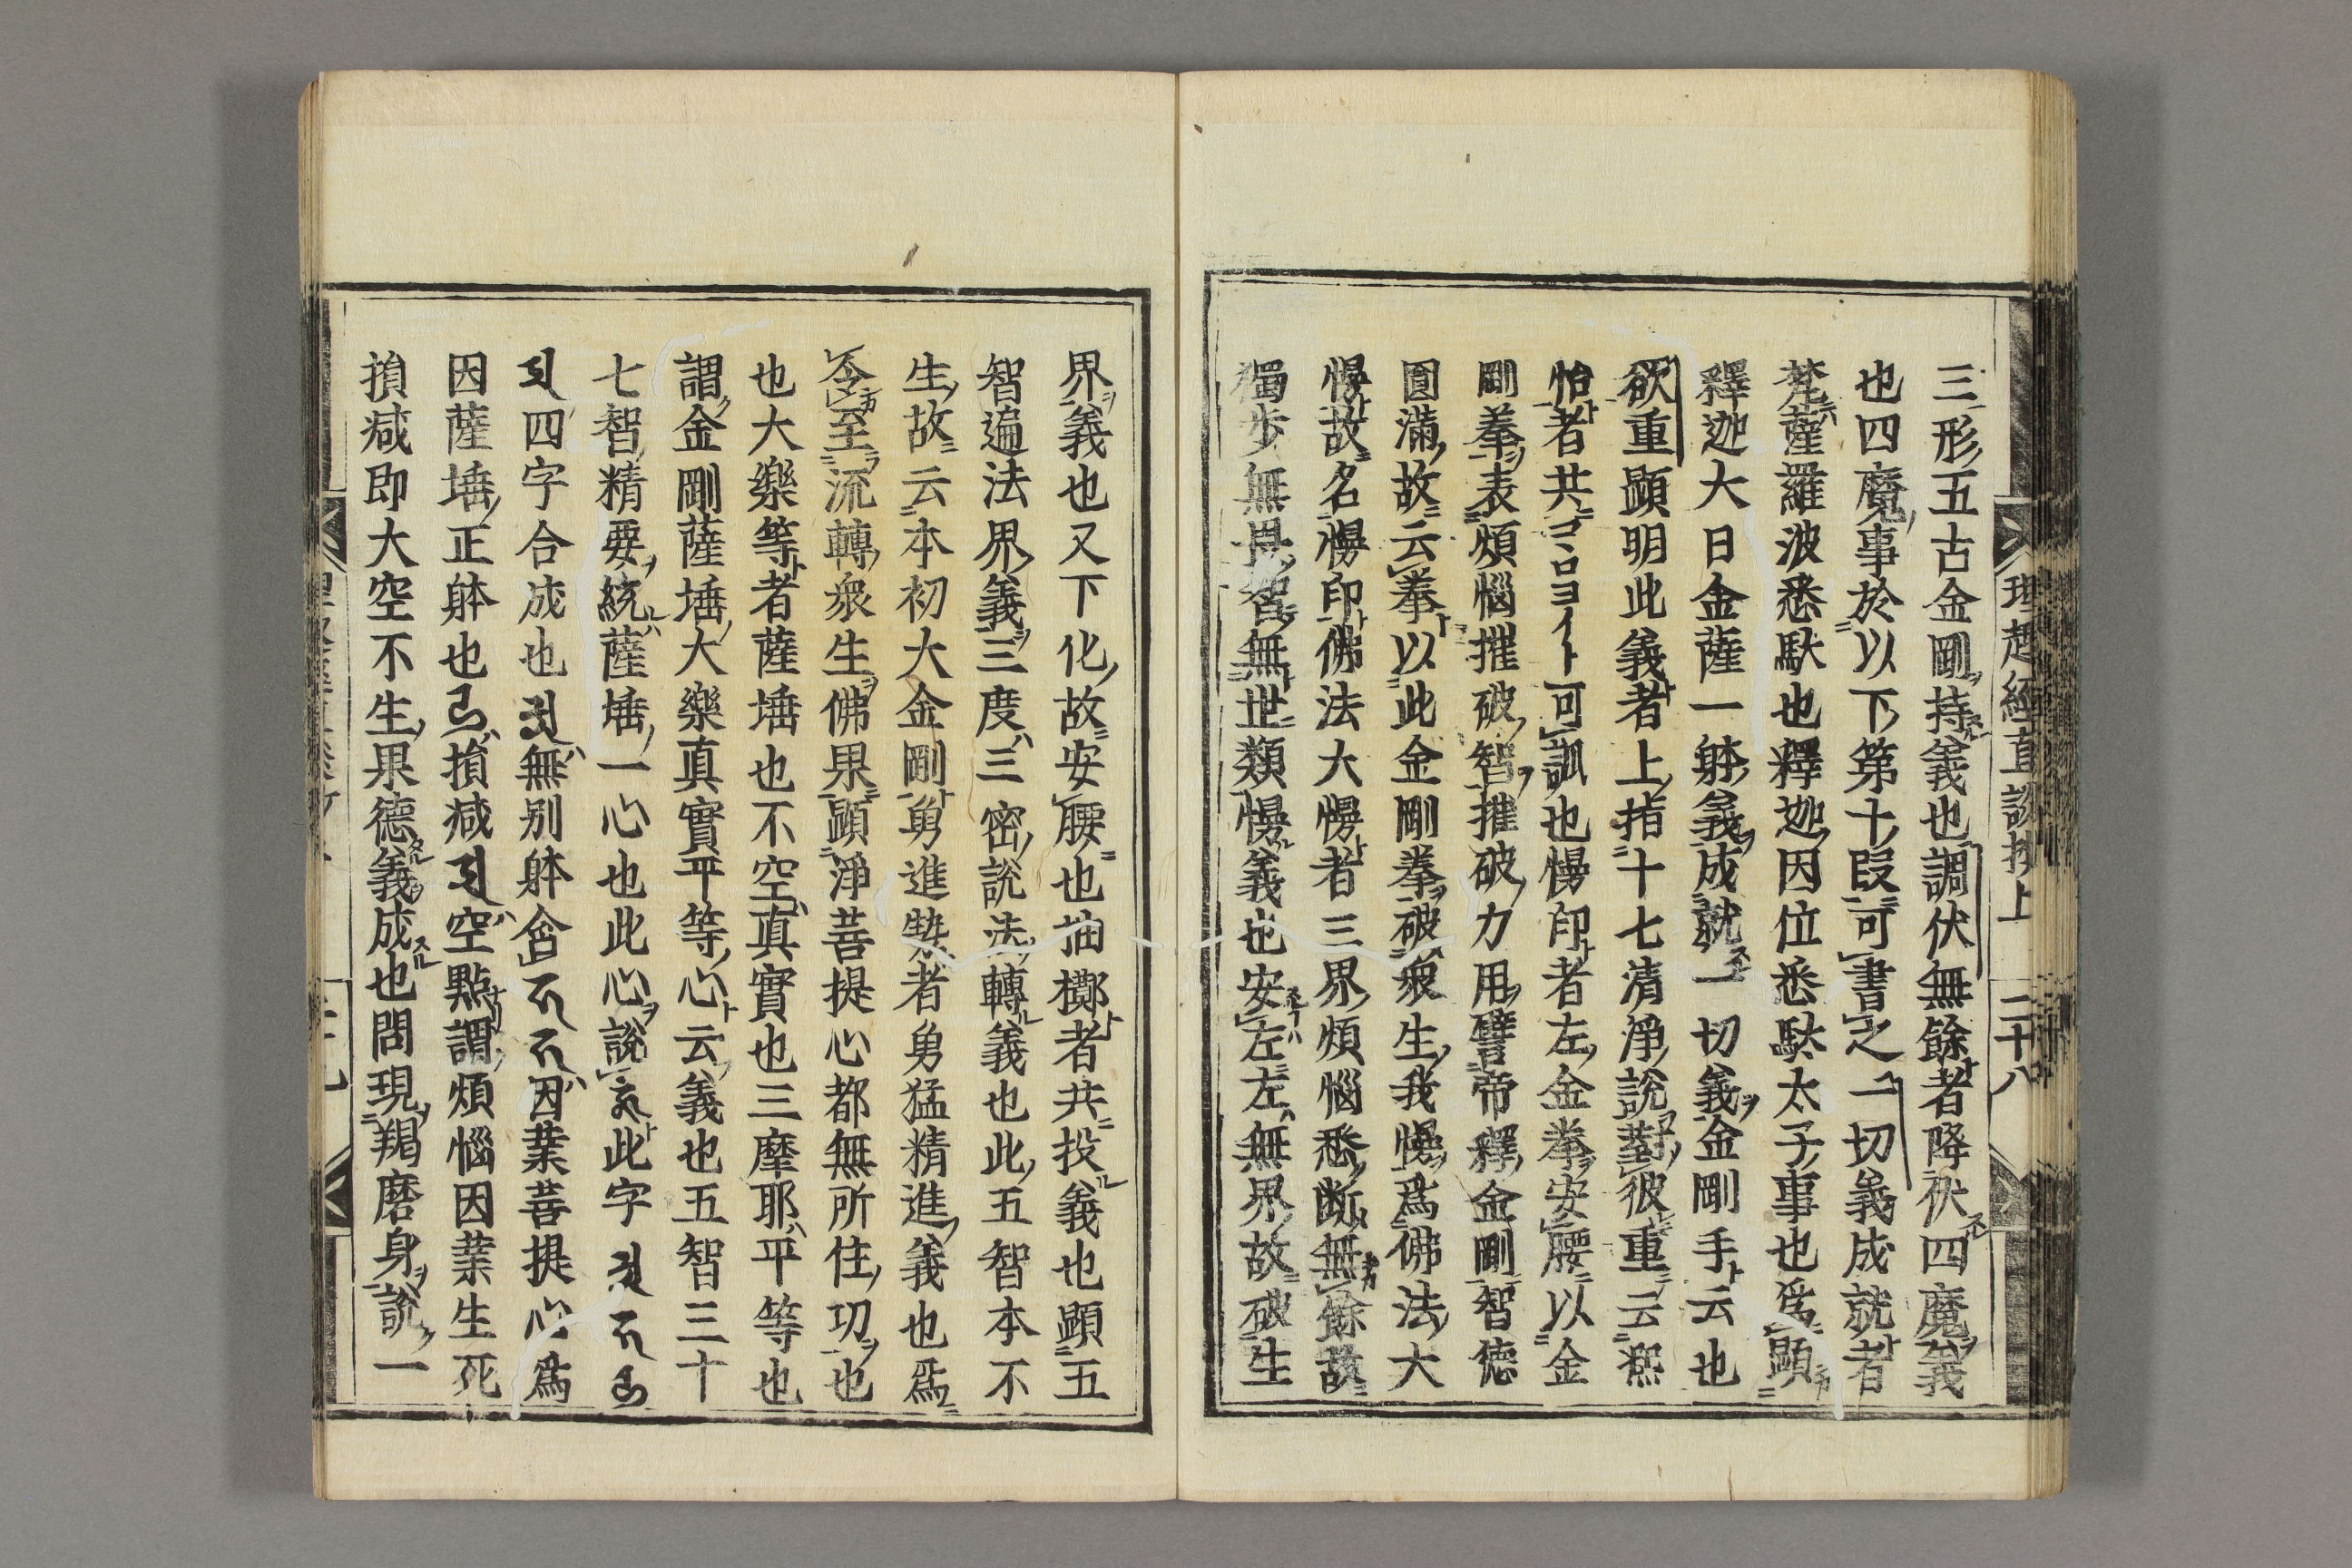 三形五古金剛持義也調伏無餘者降伏四魔義
也四魔事於以下第十段可書之一切義成就者
梵薩羅波悉駄也釋迦因位悉駄太子事也爲顕
釋迦大日金薩一躰義成就一切義金剛手云也
欲重顕明此義者上指十七清浄説對彼重云熈
怡者共ヨロコヒイト可訓也慢印者左金拳安腰以金
剛拳表煩惱摧破智摧破力用譬帝釋金剛智德
圓滿故云拳以此金剛拳破衆生我慢爲佛法大
慢故名慢印佛法大慢者三界煩惱悉断無餘故
獨歩無畏智無世類慢義也安左左無界故破生
理趣經直談抄上 二十八
界義也又下化故安腰也抽擲者共投義也顕五
智遍法界義三度三密説法轉義也此五智本不
生故云本初大金剛勇進勢者勇猛精進義也爲
令至流轉衆生佛果顕淨菩提心都無所住功也
也大樂等者薩埵也不空真實也三摩耶平等也
謂金剛薩埵大樂真實平等心云義也五智三十
七智精要統薩埵一心也此心説此字
四字合成也無別躰合因業菩提心爲
因薩埵正躰也損减空點謂煩惱因業生死
損减即大空不生果德義成也問現羯磨身説一